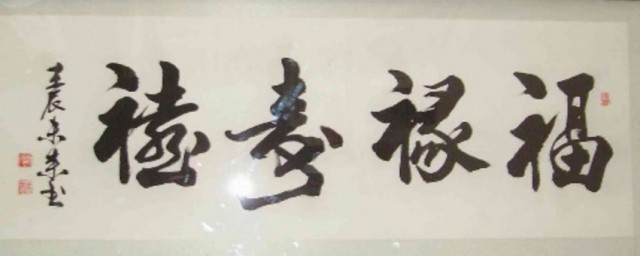 福禄寿禧
壬辰